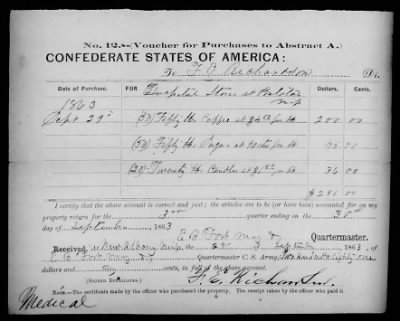 No. 12.—(Voucher for Purchases to Abstract A.)
CONFEDERATE STATES OF AMERICA:
To F. E. Richardson Dr.
Date of Purchase. FOR Dollars. Cents.
1863 Hospital Stores at
Sept 29th (50) Fifty lbs at pr lb 200 00
(50) Fifty lbs Sugar at pr lb 00
(20) Twenty lbs Candles at pr lb 36 00
$281 00
I certify that the above account is correct and just; the articles are to (or have been) accounted for on my
property return for the 3rd quarter ending on the 30th
day of September 1863
Quartermaster.
Received, at New Albany Miss the 29 of September 1863, of
Quartermaster C. S. Army, Two Hundred & Eighty one
dollars and cents, in full of the above account.
(Signed Duplicates.) F. E. Richardson
Note.—The certificate made by the officer who purchased the property. The receipt taken by the officer who paid it.
Medical